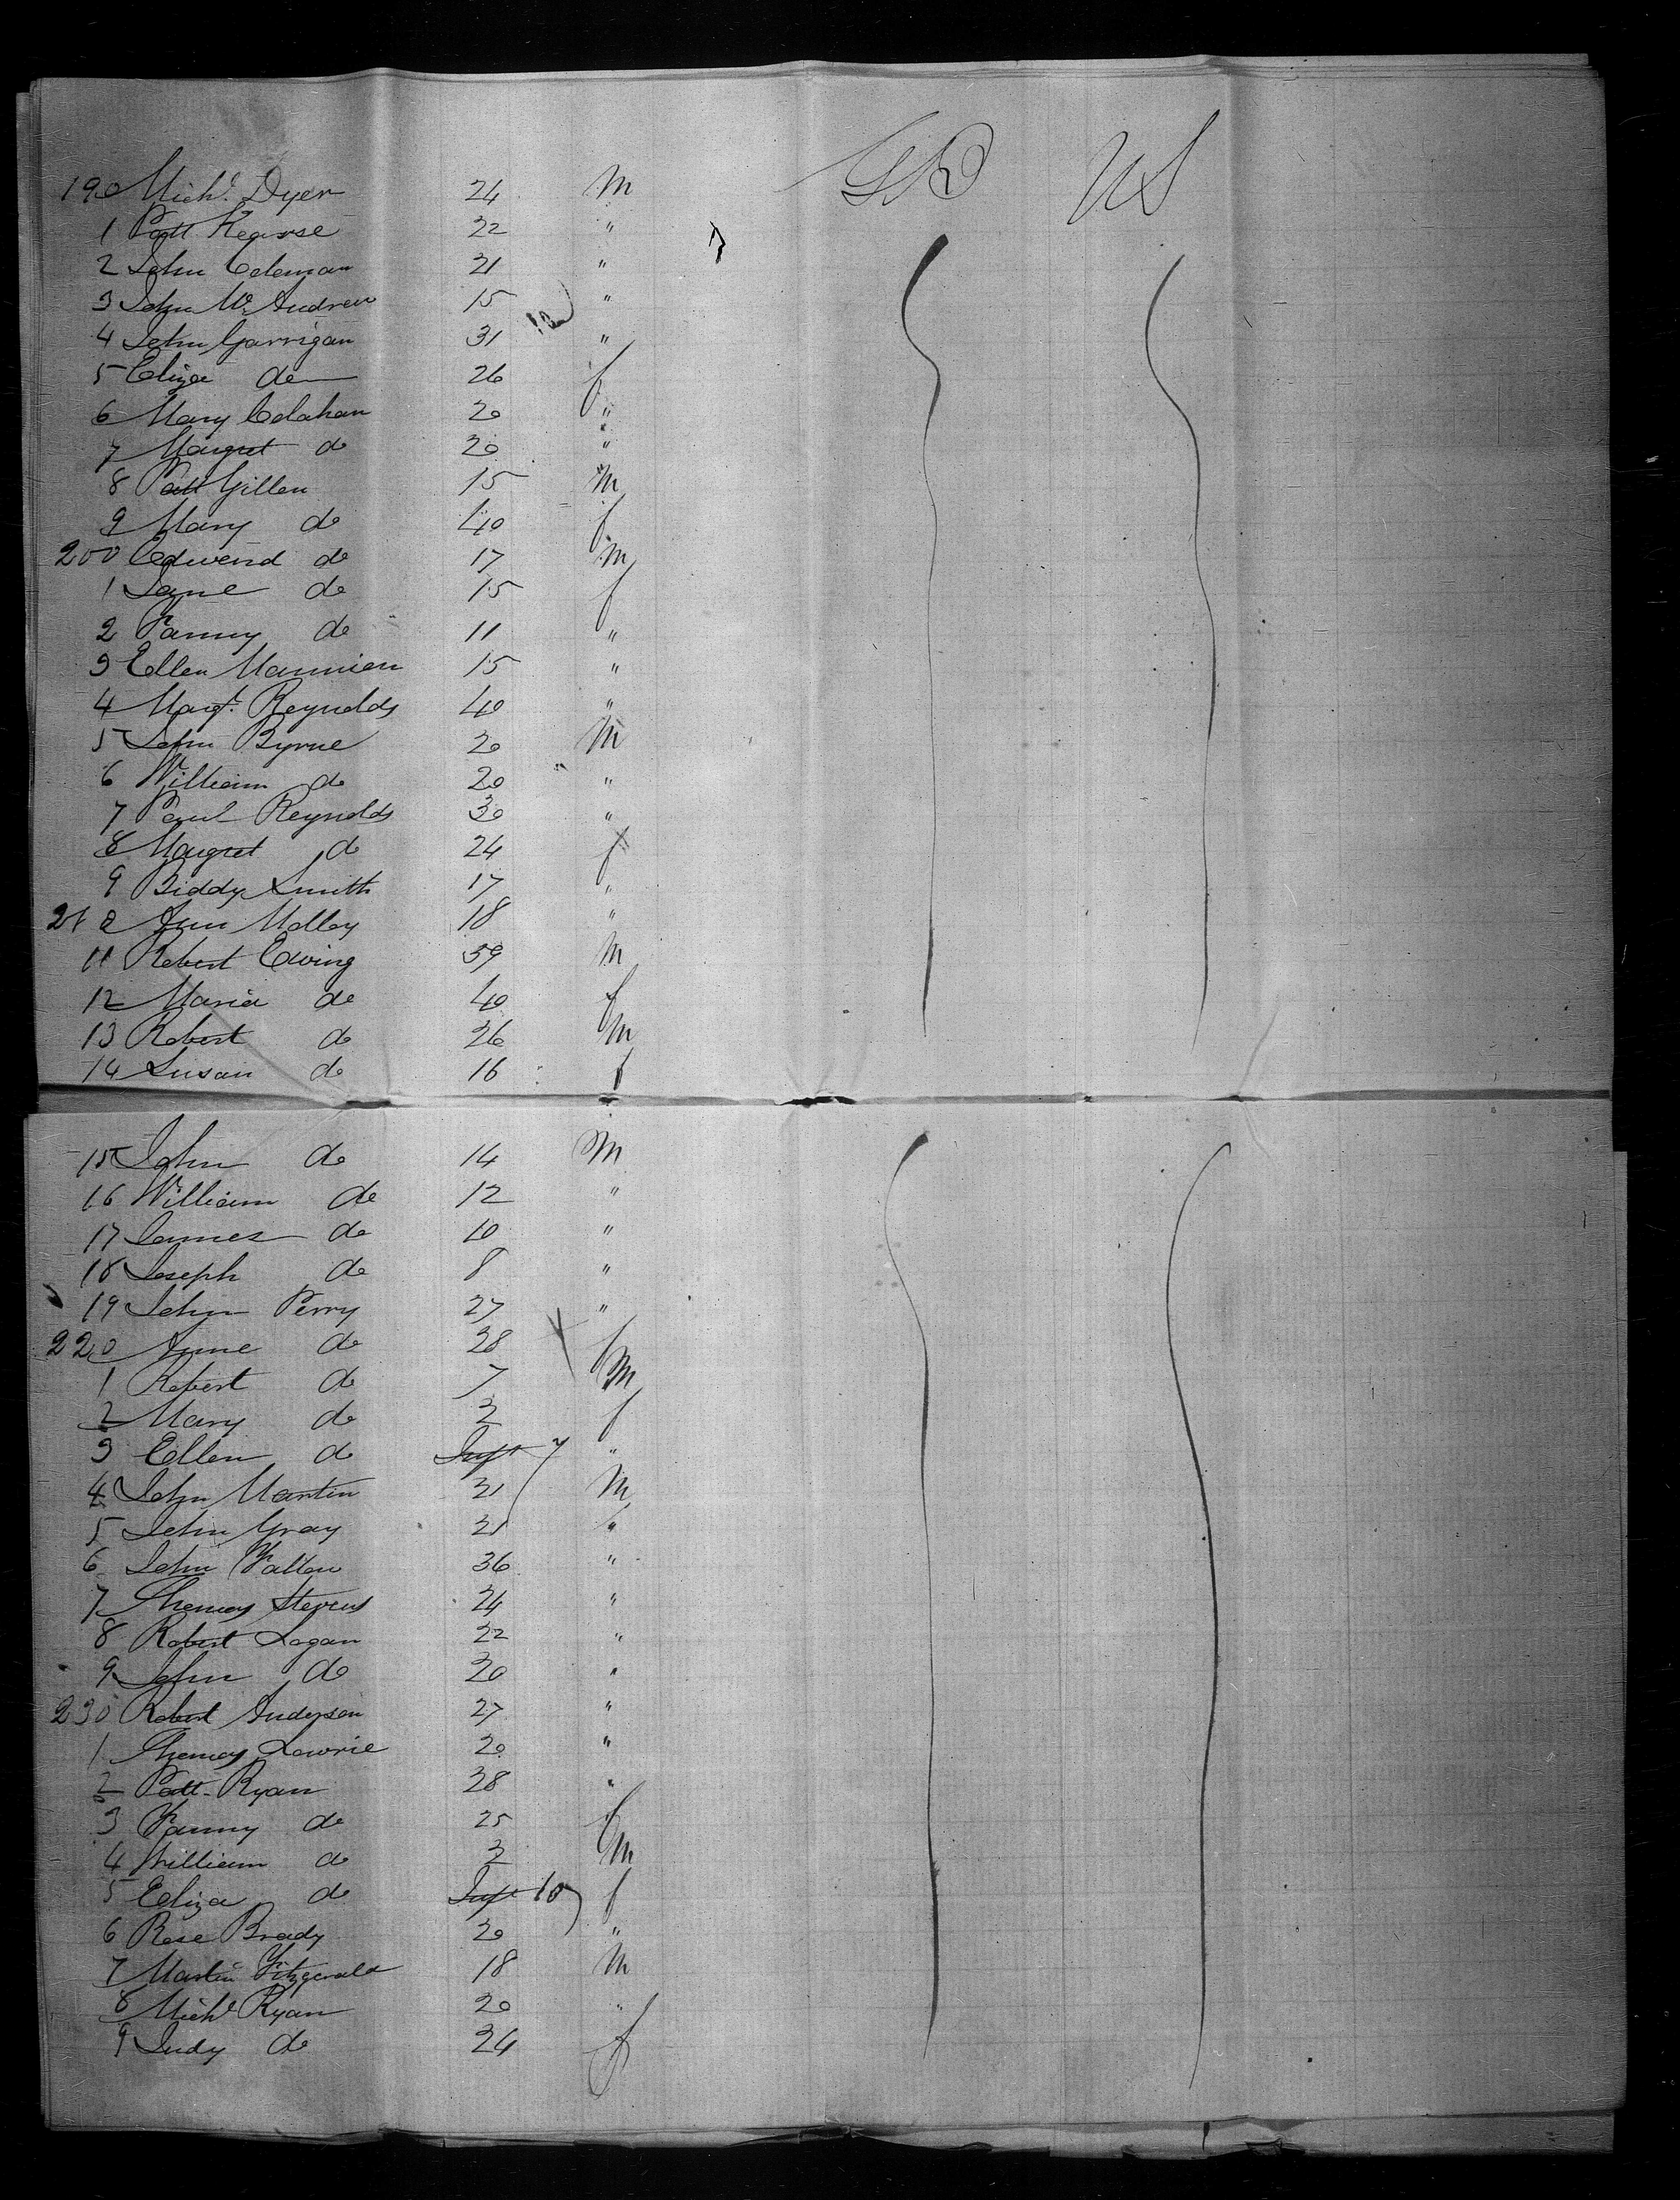 GB US
190 Michl. Dyer 24 m
1 Patt Kearse 22 "
2 John Coleman 21 "
3 John McAndrew 15 "
4 John Garrigan 31 "
5 Eliza do 26 f
6 Mary Colahan 20 "
7 Margret do 20 "
8 Patt Gillen 15 m
9 Mary do 40 f
200 Edward do 17 m
1 Jane do 15 f
2 Fanny do 11 "
3 Ellen Mannien 15 "
4 Margt. Reynolds 40 "
5 John Byrne 20 m
6 William do 20 "
7 Paul Reynolds 30 "
8 Margret do 24 f
9 Biddy Smith 17 "
210 Ann Molloy 18 "
11 Robert Ewing 39 m
12 Maria do 40 f
13 Robert do 26 m
14 Susan do 16 f
15 John do 14 m
16 William do 12 "
17 James do 10 "
18 Joseph do 8 "
19 John Perry 27 "
220 Anne do 28 f
1 Robert do 7 m
2 Mary do 3 f
3 Ellen do Inft 7 "
4 John Martin 21 m
5 John Gray 21 "
6 John Fallon 36 "
7 Thomas Stevens 24 "
8 Robert Logan 22 "
9 John do 20 "
230 Robert Anderson 27 "
1 Thomas Lowrie 20 "
2 Patt. Ryan 28 "
3 Fanny do 25 f
4 William do 3 m
5 Eliza do Inft 10 f
6 Rose Brady 20 "
7 Martin Fitzgerald 18 m
8 Michl Ryan 20 "
9 Judy do 24 f